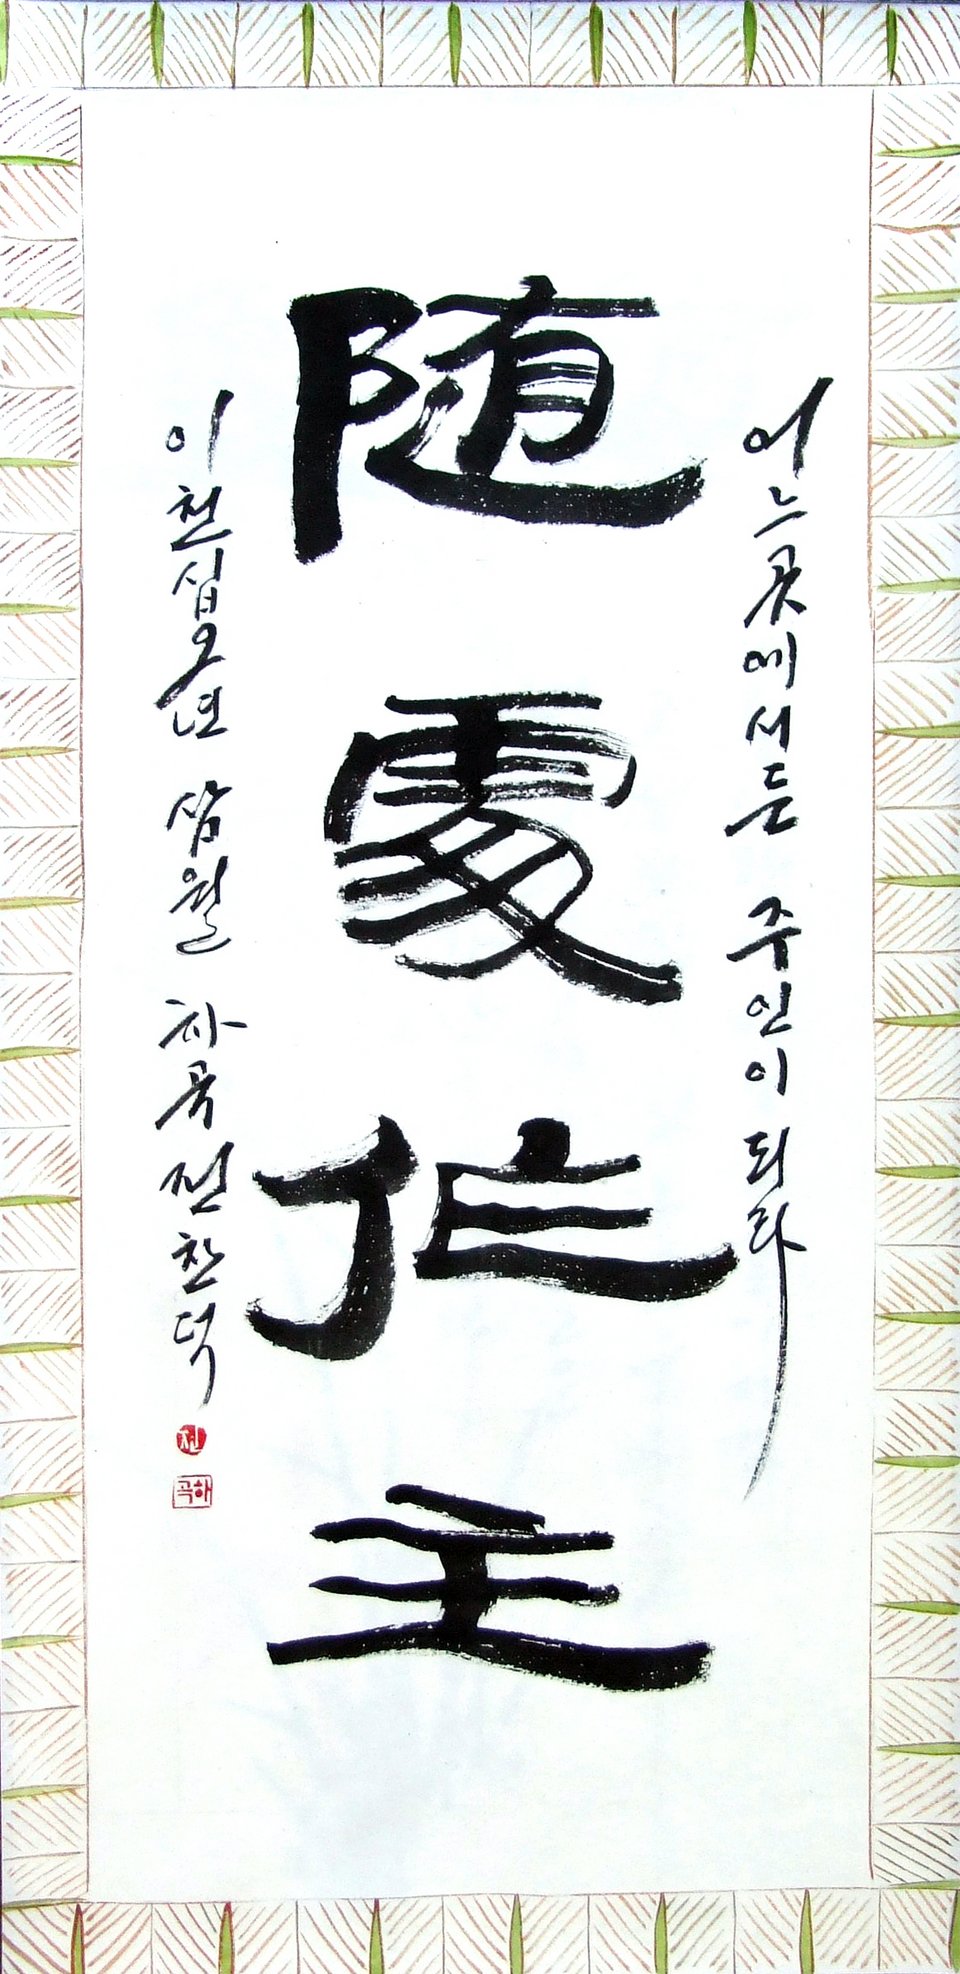 어느곳에서든 주인이 되라
随處作主
이천십오년 삼월 하곡 전찬덕
전
하곡